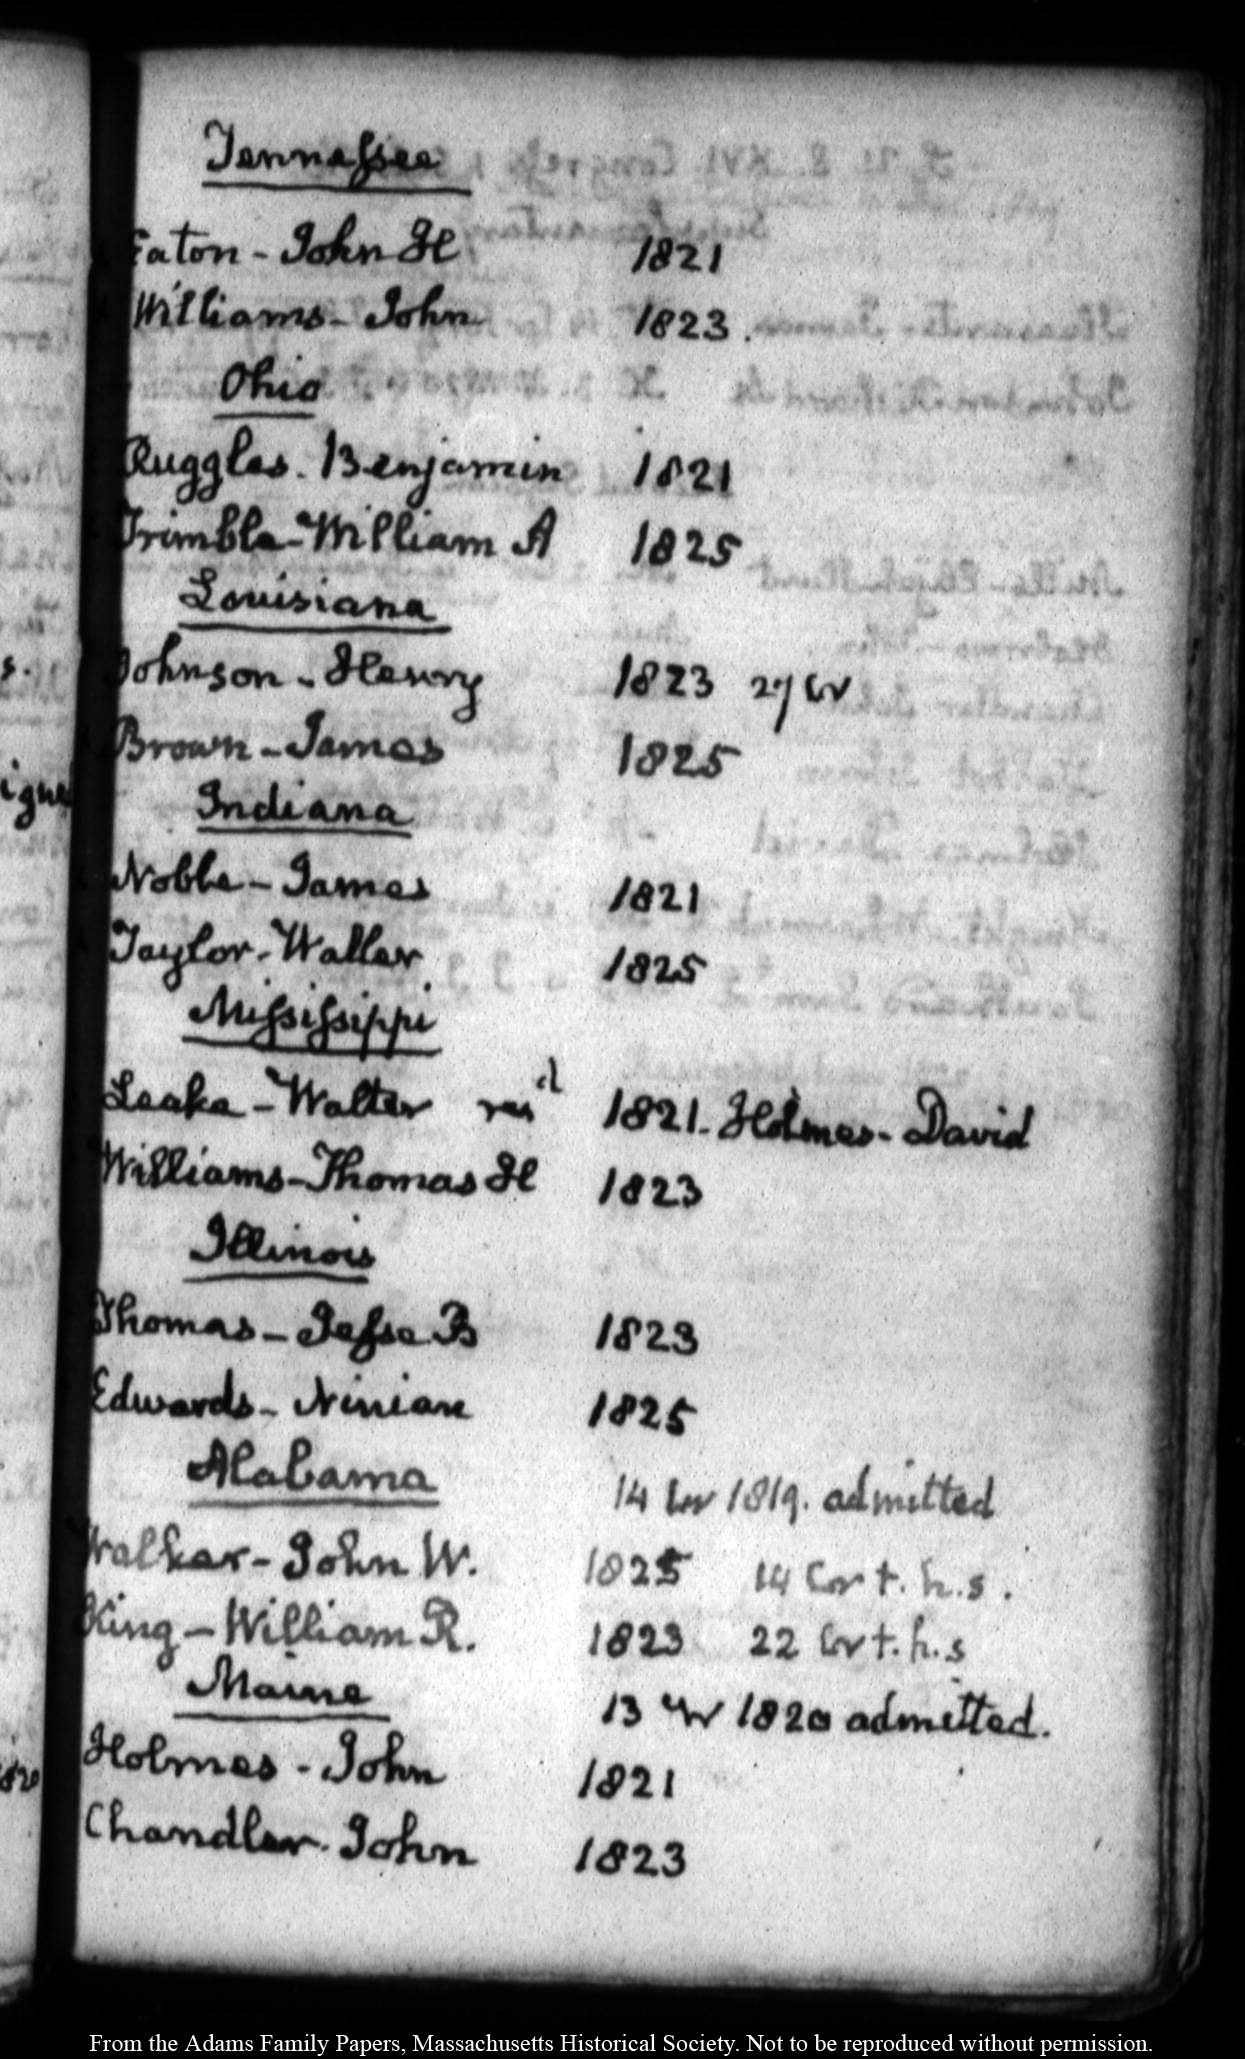 Tennessee
Eaton - John H 1821
Williams - John 1823.
Ohio
Ruggles. Benjamin 1821
Trimble - William A 1825
Louisiana
Johnson - Henry 1823
Brown - James 1825
Indiana
Noble - James 1821
Taylor - Waller 1825
Mississippi
Leake - Walter resd 1821. Holmes - David
Williams - Thomas H 1823
Illinois
Thomas - Jesse B 1823
Edwards - Ninian 1825
Alabama 14 1819. admitted
Walker - John W. 1825 14 t. h. s.
King - William R. 1823 22 t. h. s
Maine 13 1820 admitted.
Holmes - John 1821
Chandler. John 1823
From the Adams Family Papers, Massachusetts Historical Society. Not to be reproduced without permission.